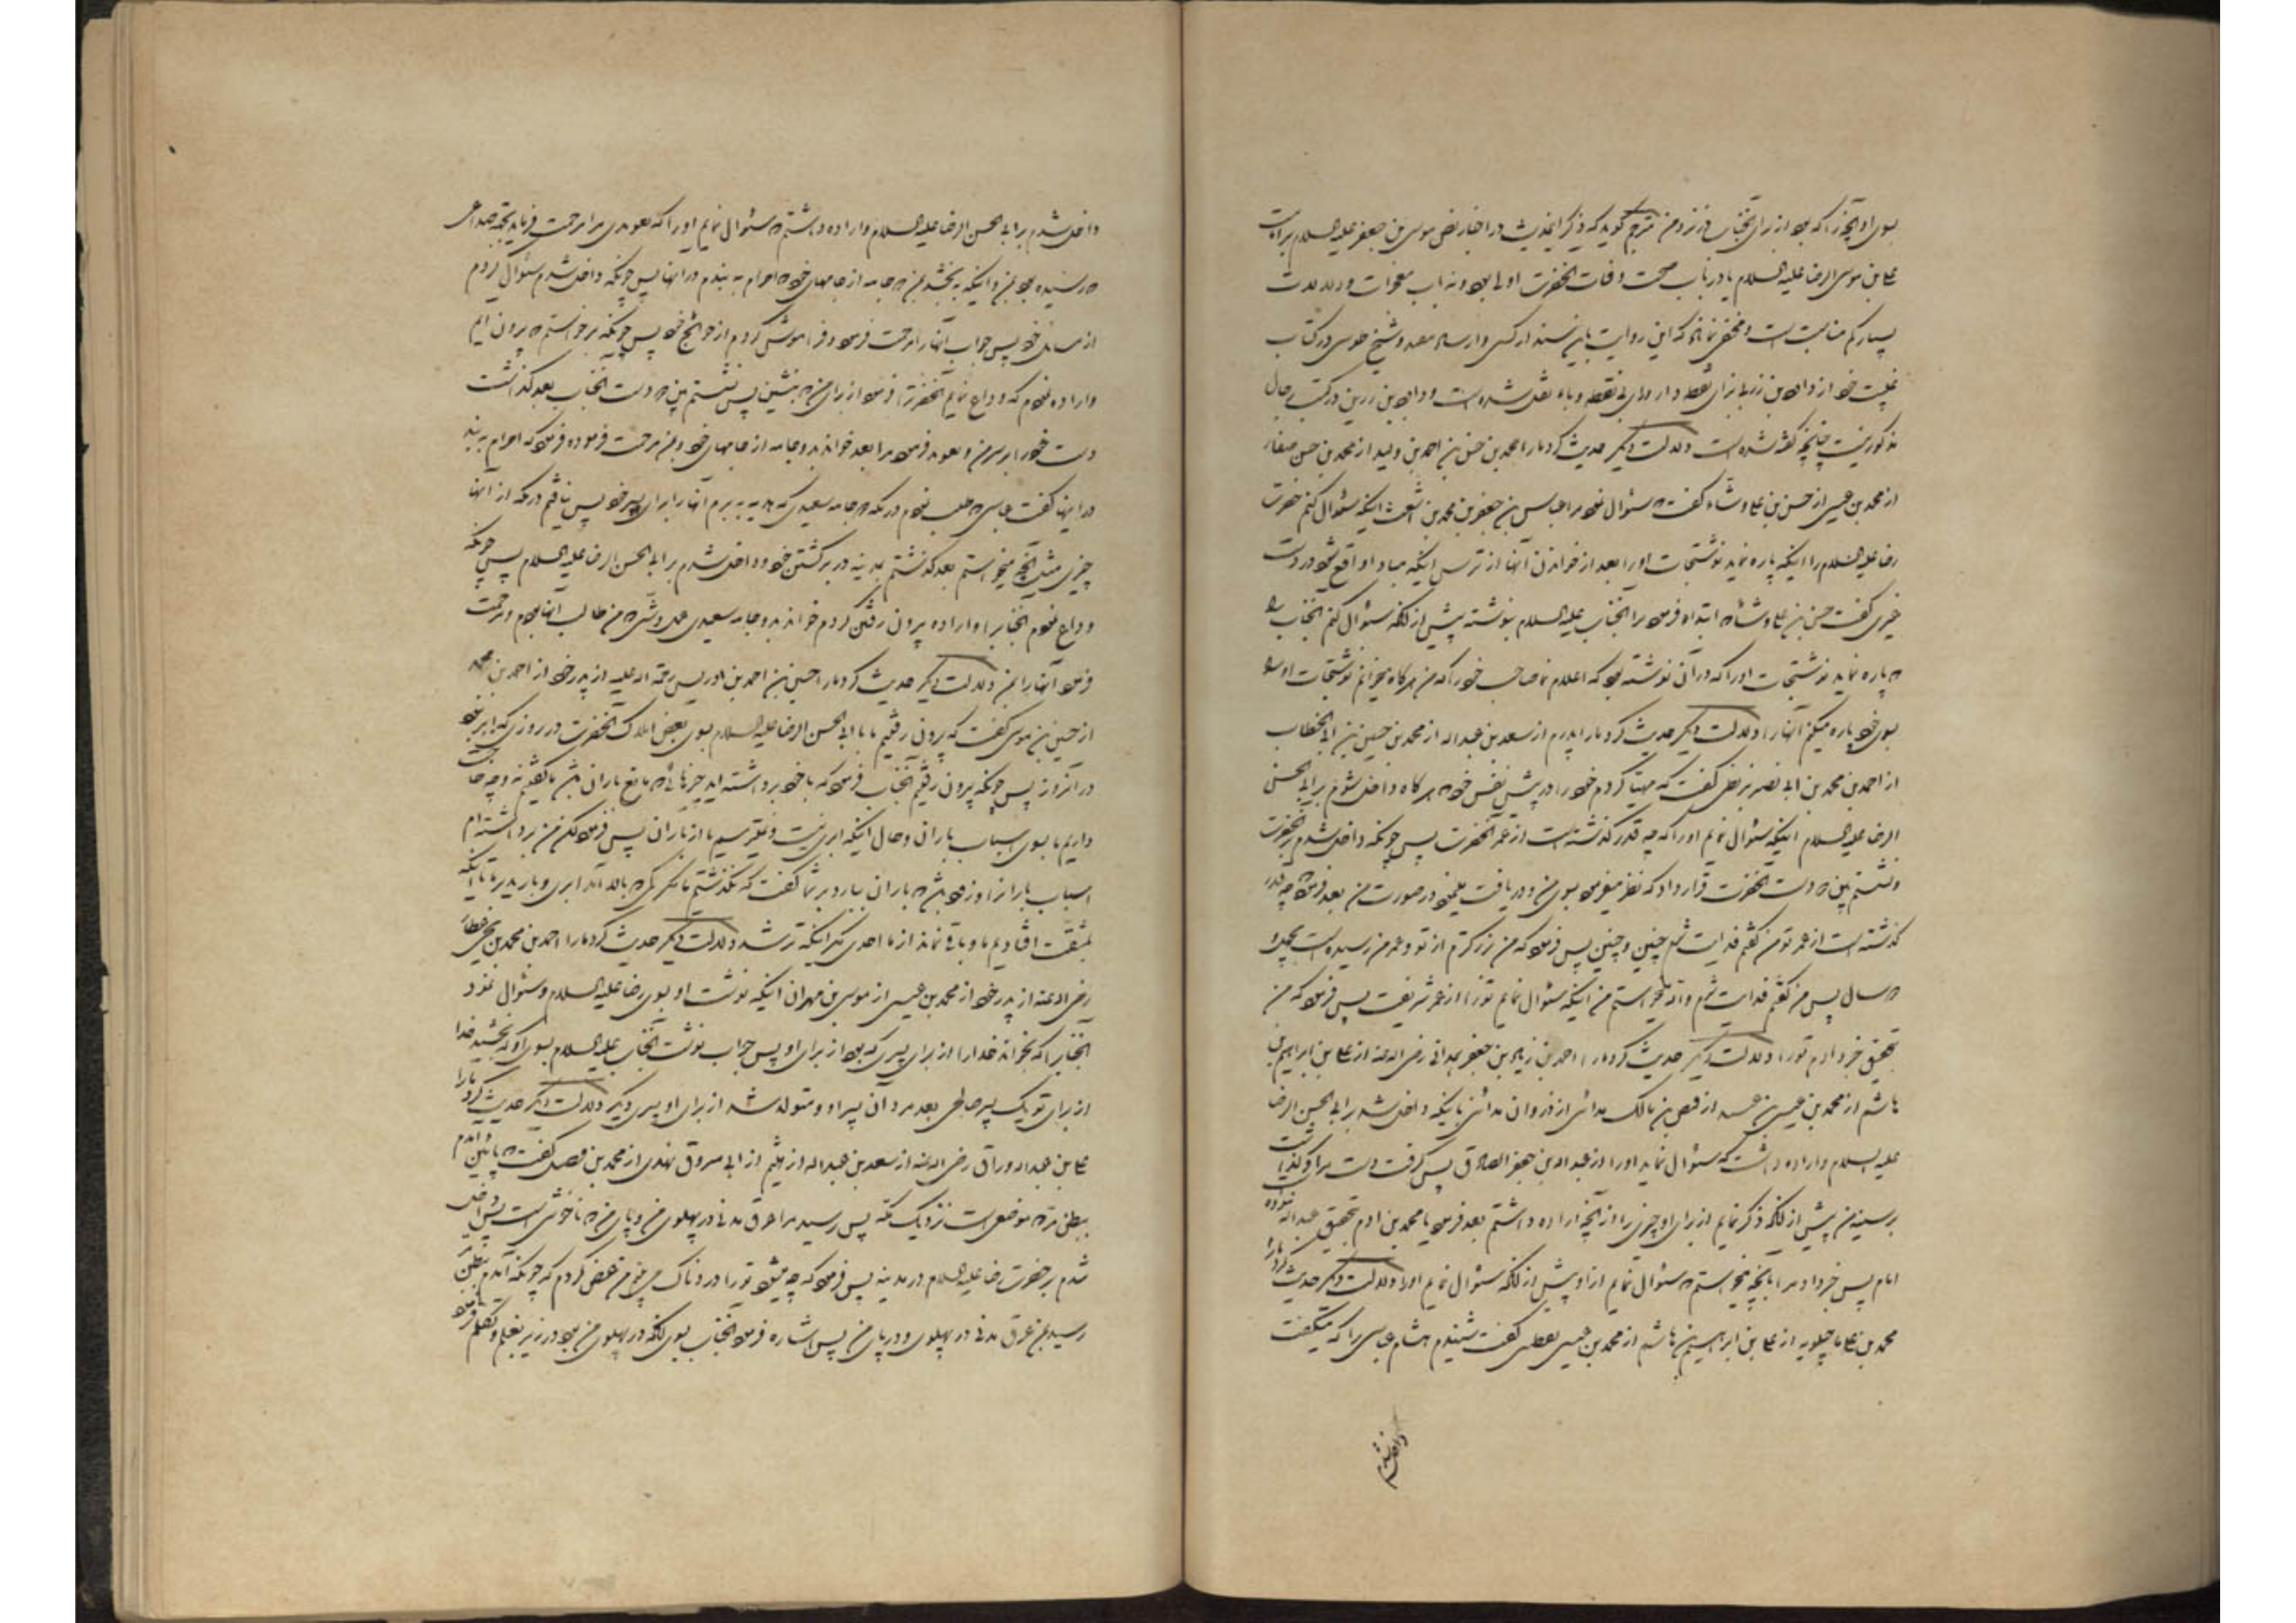 بسوی او آنچیز را که بود از برای آنجناب در نزد من مترجم گوید که ذکر اینحدیث در اخبار نص موسی بن جعفر علیه السلام بر امامت
علی بن موسی الرضا علیه السلام یا در باب صحت وفات آنحضرت اولی بود و به باب معجزات و دلالات
بسیار کم مناسبت است و مخفی نماند که این روایت باین سند از کشی و ارشاد مفید و شیخ طوسی در کتاب
غیبت خود از داود بن زربی بزای نقطه دار و رای بی نقطه و باء نقل شده است و داود بن زرین در کتب رجال
مذکور نیست چنانچه گفته شده است دلالت دیگر حدیث کرد ما را محمد بن حسن بن احمد بن ولید از محمد بن حسن صفار
از محمد بن عیسی از حسن بن علی وشاء گفت که سئوال نمود مرا عباس بن جعفر بن محمد بن اشعث اینکه سئوال کنم حضرت
رضا علیه السلام را اینکه پاره نماید نوشتجات او را بعد از خواندن آنها از ترس اینکه مبادا واقع شود در دست
غیری گفت حسن بن علی وشاء که ابتداء فرمود مرا آنجناب علیه السلام بنوشته پیش از آنکه سئوال کنم آنجناب را
که پاره نماید نوشتجات او را که در آن نوشته بود که اعلام نما صاحب خود را که من هر گاه میخوانم نوشتجات او را
بسوی خود پاره میکنم آنها را دلالت دیگر حدیث کرد ما را پدرم از سعد بن عبد اله از محمد بن حسین بن ابی الخطاب
از احمد بن محمد بن ابی نصر بزنطی گفت که مهیا کردم خود را در پیش نفس خود که هر گاه داخل شوم بر ابی الحسن
الرضا علیه السلام اینکه سئوال نمایم او را که چه قدر گذشته است از عمر آنحضرت پس چونکه داخل شدم بر آنحضرت
و نشستم پیش دست آنحضرت قرار داد که نظر میفرمود بسوی من و دریافت مینمود در صورت من بعد فرمود که چه قدر
گذشته است از عمر تو من گفتم فدایت شوم چنین و چنین پس فرمود که من بزرگترم از تو و عمر من رسیده است بچهل و
دو سال پس من گفتم فدایت شوم واله میخواستم من اینکه سئوال نمایم تو را از عمر شریفت پس فرمود که من
بتحقیق خبر دادم تو را دلالت دیگر حدیث کرد ما را احمد بن زیاد بن جعفر همدانی رضی اله عنه از علی بن ابراهیم بن
هاشم از محمد بن عیسی بن عبید از فیض بن مالک مدائنی از ذروان مدائنی باینکه داخل شد بر ابی الحسن الرضا
علیه السلام و اراده داشت که سئوال نماید او را از عبد اله بن جعفر الصادق پس گرفت دست مرا و گذاشت
بر سینه من پیش از آنکه ذکر نمایم از برای او چیزی را از آنچه اراده داشتم بعد فرمود یا محمد بن آدم بتحقیق عبد اله نبوده
امام پس خبر داد مرا بآنچه میخواستم که سئوال نمایم از او پیش از آنکه سئوال نمایم او را دلالت دیگر حدیث کرد ما را
محمد بن علی ماجیلویه از علی بن ابراهیم بن هاشم از محمد بن عیسی یقطینی گفت شنیدم هشام عباسی را که میگفت
داخل شدم
داخل شدم بر ابی الحسن الرضا علیه السلام و اراده داشتم که سئوال نمایم او را که تعویذی مرا مرحمت فرماید بجهة صداعی
که رسیده بود بمن و اینکه ببخشد بمن دو جامه از جامهای خود که احرام به بندم در آنها پس چونکه داخل شدم سئوال کردم
از مسائل خود پس جواب آنها را مرحمت فرمود و فراموش کردم از حوائج خود پس چونکه برخواستم که بیرون آیم
و اراده نمودم که وداع نمایم آنحضرت را فرمود از برای من که بنشین پس نشستم پیش دست آنجناب بعد گذاشت
دست خود را بر سر من و تعویذ فرمود مرا بعد خواند دو جامه از جامهای خود و بمن مرحمت فرموده فرمود که احرام به بند
در اینها گفت عباسی که طلب نمودم در مکه دو جامه سعیدی که هدیه ببرم آنها را برای پسر خود پس نیافتم در مکه از آنها
چیزی مثل آنچه میخواستم بعد گذشتم بمدینه در برگشتن خود و داخل شدم بر ابی الحسن الرضا علیه السلام پس چونکه
وداع نمودم آنجناب را و اراده بیرون رفتن کردم خواند دو جامه سعیدی عمل وشی که من طالب آنها بودم و مرحمت
فرمود آنها را بمن دلالت دیگر حدیث کرد ما را حسین بن احمد بن ادریس رحمة اله علیه از پدر خود از احمد بن محمد
از حسین بن موسی گفت که بیرون رفتیم ما با ابی الحسن الرضا علیه السلام بسوی بعض املاک آنحضرت در روزی که ابر نبود
در آنروز پس چونکه بیرون رفتیم آنجناب فرمود که با خود برداشته اید چیزهائی که مانع باران باشد ما گفتیم نه و چه حاجت
داریم ما بسوی اسباب بارانی و حال اینکه ابری نیست و نمیترسیم ما از باران پس فرمود لکن من برداشته ام
اسباب باران را و زود باشد که باران ببارد بر شما گفت که نگذشتیم ما مگر کمی که بالا آمد ابری و بارید بر ما تا اینکه
بمشقت افتادیم ما و باقی نماند از ما احدی مگر اینکه تر شد دلالت دیگر حدیث کرد ما را احمد بن محمد بن یحیی عطار
رضی اله عنه از پدر خود از محمد بن عیسی از موسی بن مهران اینکه نوشت او بسوی رضا علیه السلام و سئوال نمود
آنجناب را که بخواند خدا را از برای پسری که بود از برای او پس جواب نوشت آنجناب علیه السلام بسوی او که بخشید خدا
از برای تو یک پسر صالحی بعد مرد آن پسر او و متولد شد از برای او پسری دیگر دلالت دیگر حدیث کرد ما را
علی بن عبد اله وراق رضی اله عنه از سعد بن عبد اله از هیثم بن ابی مسروق نهدی از محمد بن فضیل گفت که پائین آمدم
ببطن مر که موضعی است نزدیک مکه پس رسید مرا عرق مدنی در پهلوی من و پای من که ناخوشی است پس داخل
شدم بر حضرت رضا علیه السلام در مدینه پس فرمود که چه میشود تو را دردناک می بینم من عرض کردم که چونکه آمدم ببطن مر
رسید بمن عرق مدنی در پهلوی و در پای من پس اشاره فرمود آنجناب بسوی آنکه در پهلوی من بود در زیر بغلم و تکلم فرمود